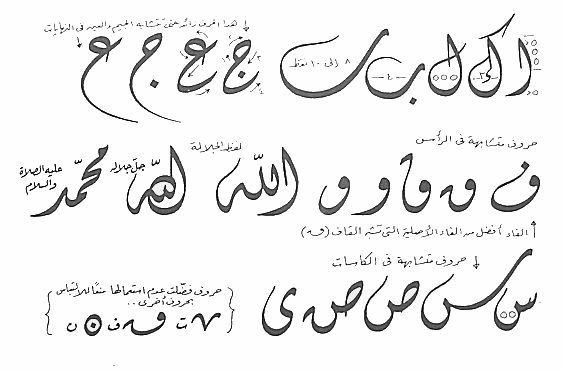 هذا الحرف زائد حتى تتشابه الجيم والعين في النهايات
ا ك ل ب ٤ ٨ إلى ١٠ نقط ج ع ج ع
حروف متشابهة في الرأس
لفظ الجلالة
ف و و الله الله جل جلاله محمّد عليه الصلاة والسلام
الفاء أفضل من الفاء الأصلية التي تشبه القاف
حروف متشابهة في الكاسات
س س ص ص ى
حروف فضّلت عدم استعمالها منعاً للالتباس
بحروف أخرى ..
ت ف ن